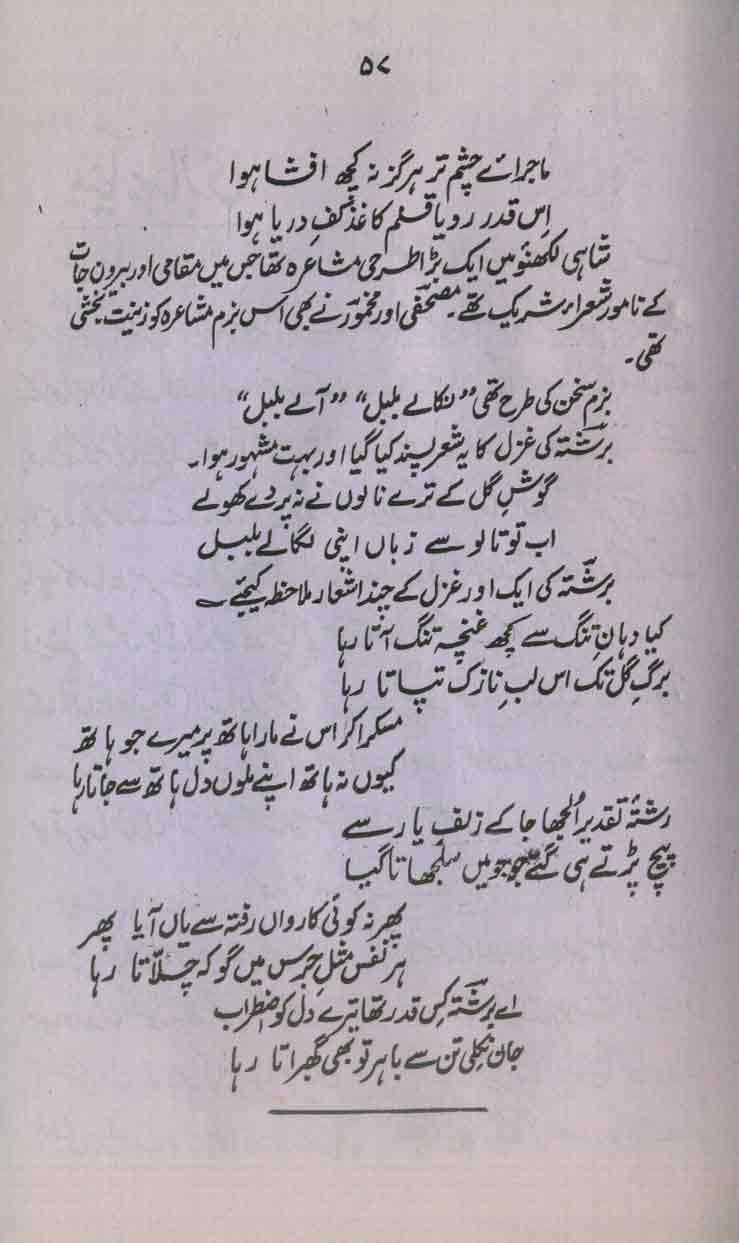 ۵۷
ماجرائے چشم تر ہرگز نہ کچھ افشا ہوا
اِس قدر رویا قلم کاغذ کفِ دریا ہوا
شاہی لکھنؤ میں ایک بڑا طرحی مشاعرہ تھا جس میں مقامی اور بیرون جات
کے نامور شعراء شریک تھے۔ مصحفی اور مخمور نے بھی اس بزم مشاعرہ کو زینت بخشی
تھی۔
بزم سخن کی طرح تھی "لنکالے بلبل" "آلے بلبل"
برشتہ کی غزل کا یہ شعر پسند کیا گیا اور بہت مشہور ہوا۔
گوشِ گل کے ترے نالوں نے نہ پردے کھولے
اب تو تالو سے زباں اپنی لگالے بلبل
برشتہ کی ایک اور غزل کے چند اشعار ملاحظہ کیجئے۔
کیا دہانِ تنگ سے کچھ غنچہ تنگ آتا رہا
برگِ گل تک اس لبِ نازک تپاتا رہا
مسکرا کر اس نے مارا ہاتھ پر میرے جو ہاتھ
کیوں نہ ہاتھ اپنے ملوں دل ہاتھ سے جاتا رہا
رشتۂ تقدیر اُلجھا جا کے زلفِ یار سے
پیچ پڑتے ہی گئے جو جو میں سلجھاتا گیا
پھر نہ کوئی کارواں رفتہ سے یاں آیا پھر
ہر نفس مثلِ جرس میں گو کہ چلّاتا رہا
اے برشتہ کِس قدر تھا تیرے دل کو اضطراب
جان نکلی تن سے باہر تو بھی گھبراتا رہا